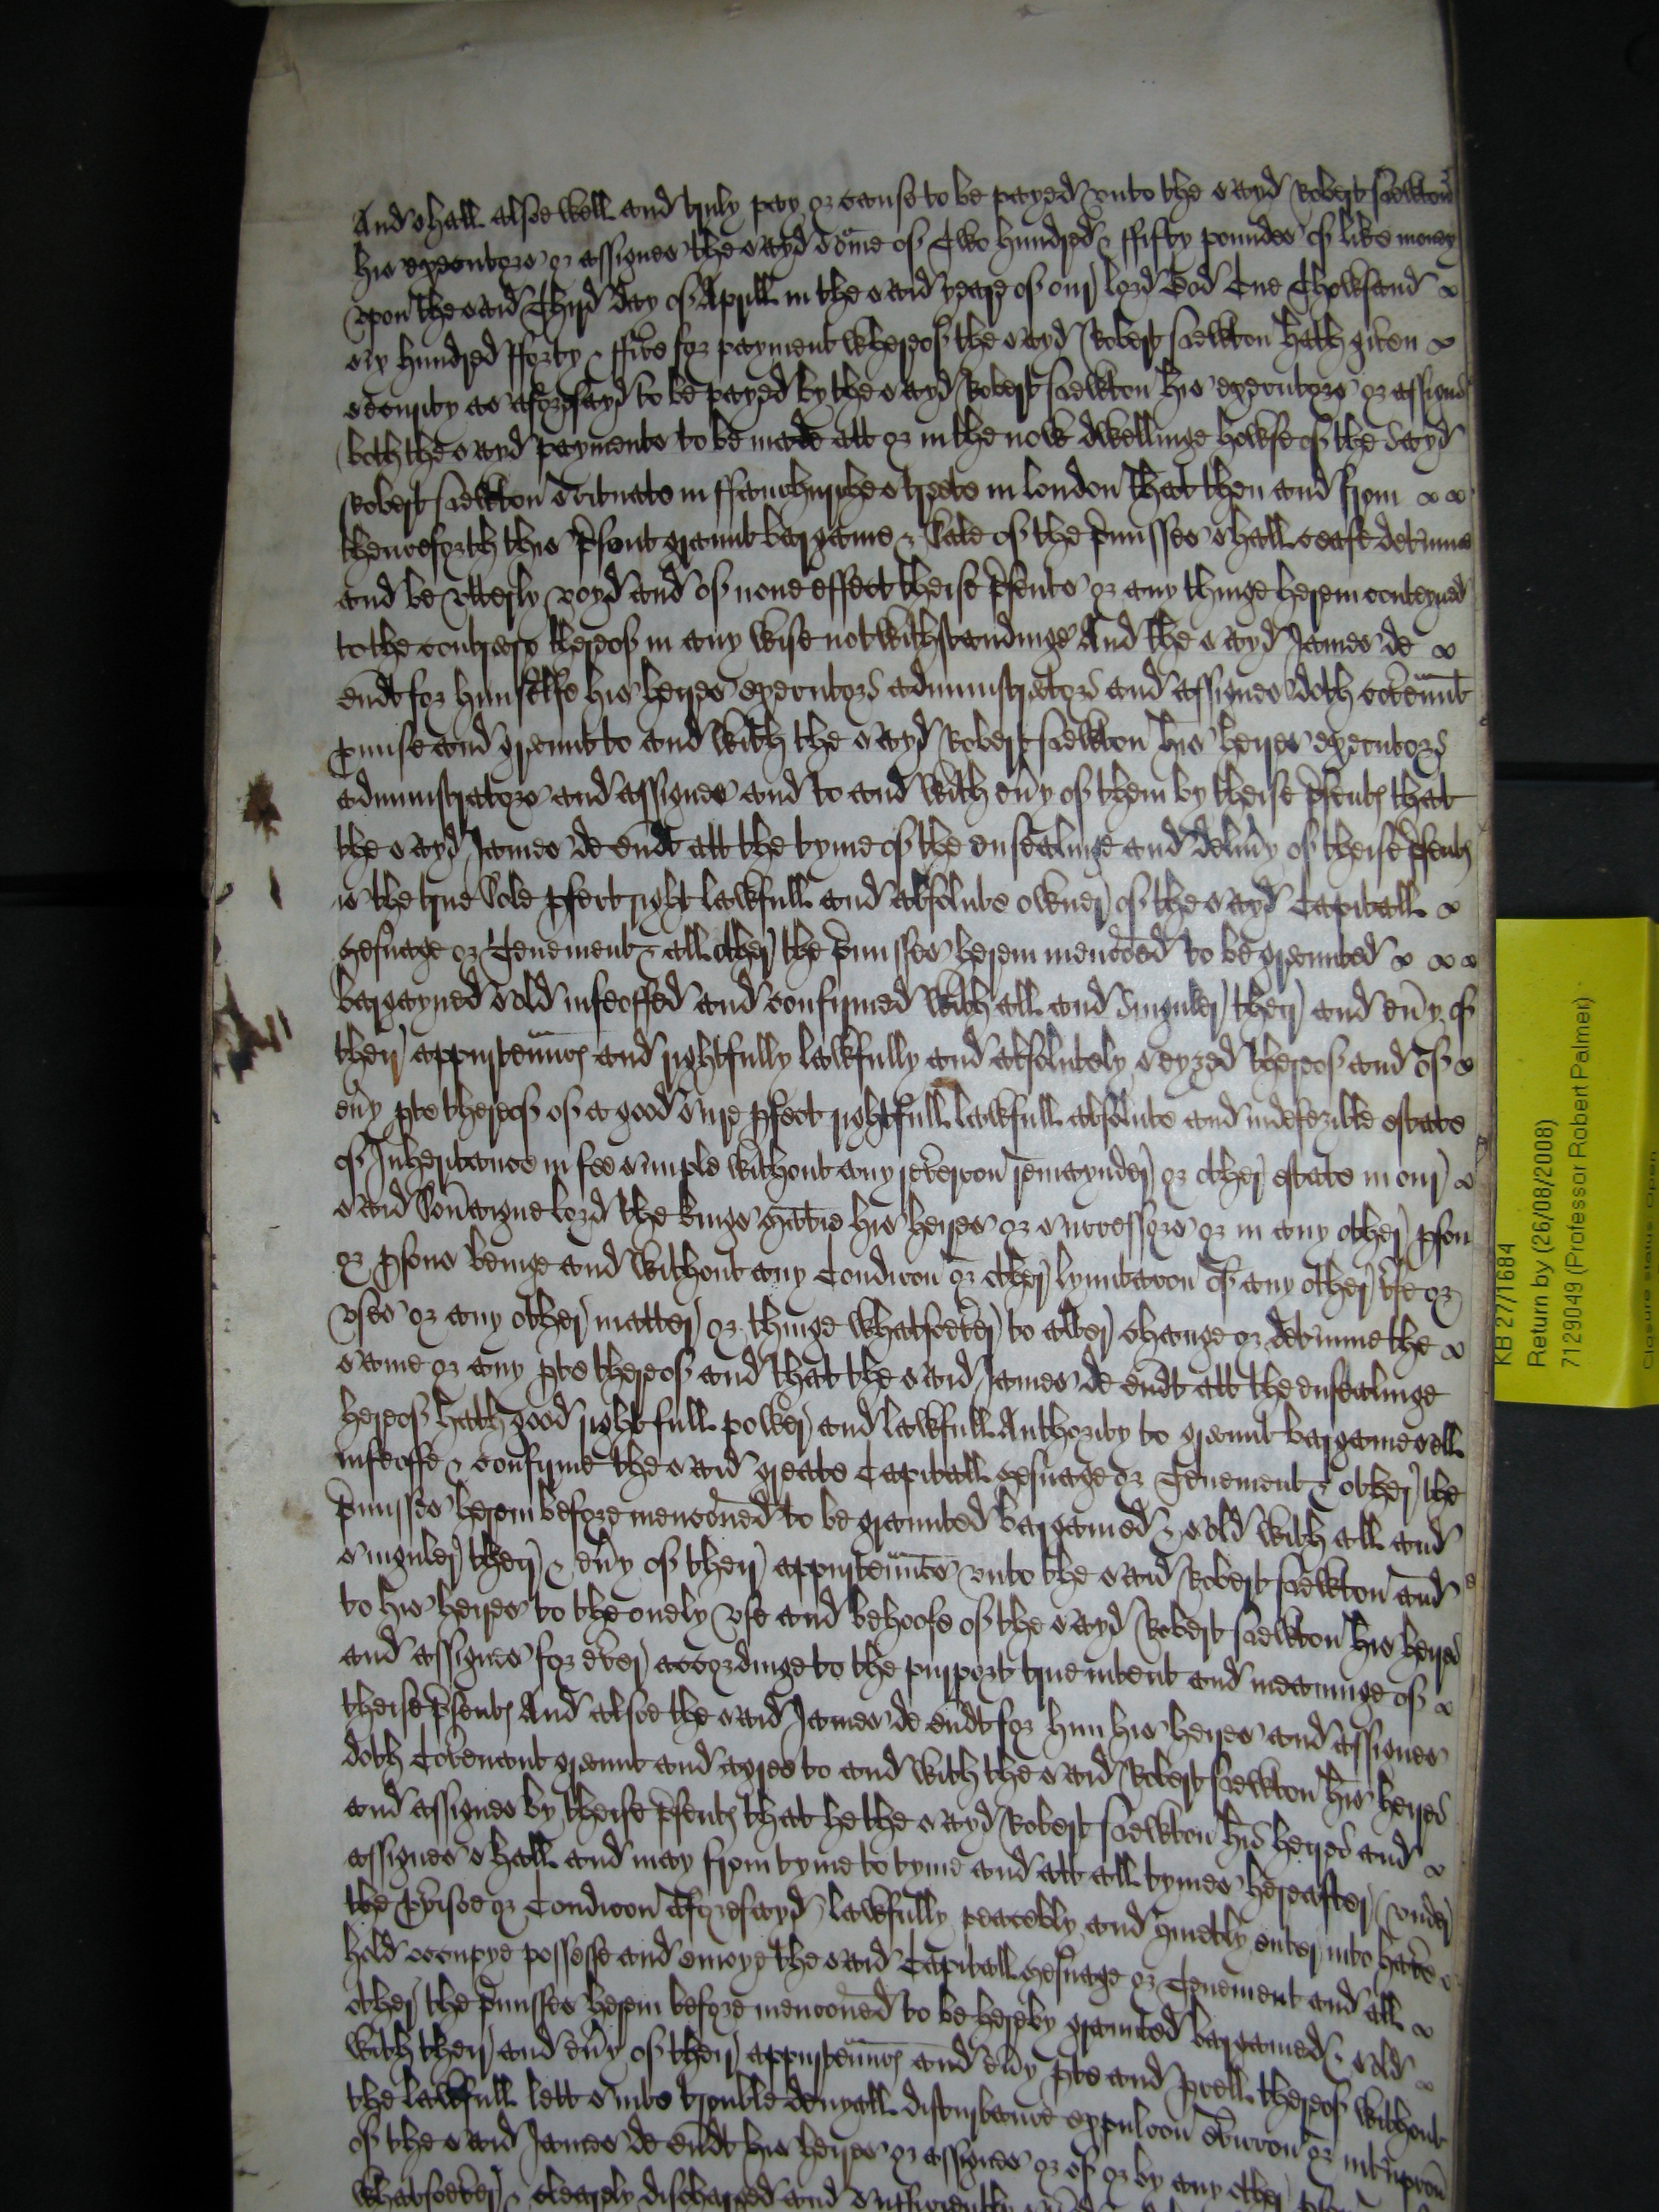 And shall alsoe well and truly pay or cause to be payed unto the sayd Robert
his executors or assignes the sayd some of Two hundred & ffifty poundes of like money
upon the said Third day of Aprill in the said yeare of our lord God One Thowsand
six hundred fforty & ffive for payment whereof the sayd Robert hath given
security as aforesayd to be payed by the sayd Robert his executors or assignes
both the sayd payments to be made att or in the now dwellinge howse of the sayd
Robert scituate in ffanchurche streete in London That then and from
thenceforth this p'sent graunt bargaine & Sale of the p'misses shall cease det'mine
and be utterly voyd and of none effect theise p'sents or any thinge herein conteyned
to the contrary thereof in any wise notwithstandinge And the sayd James de
for himselfe his heires executors administrators and assignes doth coven'nt
p'mise and graunt to and with the sayd Robert his heires executors
administrators and assignes and to and with ev'y of them by theise p'sents that
the sayd James de att the tyme of the ensealinge and deliv'y of theise p'sents
is the true Sole p'fect right lawfull and absolute owner of the sayd Capitall
Messuage or Tenement & all other the p'misses herein menc'oed to be graunted
bargayned sold infeoffed and confirmed with all and Singuler their and ev'y of
their appurten'nc's and rightfully lawfully and absolutely seyzed thereof and of
ev'y p'te thereof of a good sure p'fect rightfull lawfull absolute and indefezible estate
of Inheritance in fee simple without any rev'c'on remaynder or other estate in our
said Sov'aigne lord the kings Ma'tie his heires or successors or in any other p'son
or p'sons beinge and without any Condic'on or other lymitac'on of any other use or
uses or any other matter or thinge whatsoever to alter change or det'mine the
same or any p'te thereof and that the said James de att the ensealinge
hereof hath good rightfull power and lawfull Authority to graunt bargaine sell
infeoffe & confirme the said greate Capitall Messuage or Tenement & other the
p'misses herein before menc'oned to be graunted bargained & sold with all and
singuler their & ev'y of their appurten'nces unto the said Robert and
to his heires to the onely use and behoofe of the sayd Robert his heires
and assignes for ever accordinge to the purport true intent and meaninge of
theise p'sents And alsoe the said James de for him his heires and assignes
doth Covenant graunt and agree to and with the said Robert his heires
and assignes by theise p'sents that he the sayd Robert his heires and
assignes shall and may from tyme to tyme and att all tymes hereafter under
the p'viso or Condic'on aforesayd lawfully peaceably and quietly enter into have
hold occupye possesse and enioye the said Capitall Messuage or Tenement and all
other the p'misses herein before menc'oned to be hereby graunted bargained & sold
with their and ev'y of their appurten'nc's and ev'y p'te and p'cell thereof without
the lawfull lett suite trouble denyall disturbance expulc'on evicc'on or int'rupc'on
of the said James de his heires or assignes or of or by any other
whatsoever & clearely discharged and sufficiently
KB 27/1684
Return by (26/08/2008)
7129049 (Professor Robert Palmer)
Closure status: Open